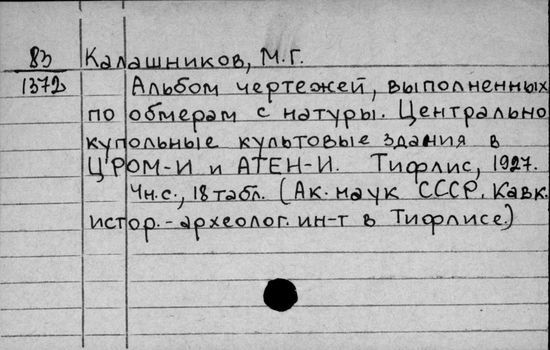 83 Калашников, М.Г.
1372 Альбом чертежей, выполненных
по обмерам с натуры. Центрально
купольные культовые здания в
ЦРОМ-И и АТЕН-И. Тифлис, 1927.
4н.с., 18 табл. (Ак. наук СССР. Кавк.
истор.-археолог. ин-т в Тифлисе)